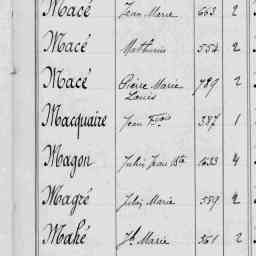 Macé Jean Marie 663 2
Macé Mathurin 554 2
Macé Pierre Marie Louis 789 2
Macquaire Jean Fois 387 1
Magon Jules Jean Bte 1633 4
Magré Marie 559 2
Mahé Jh Marie 561 2